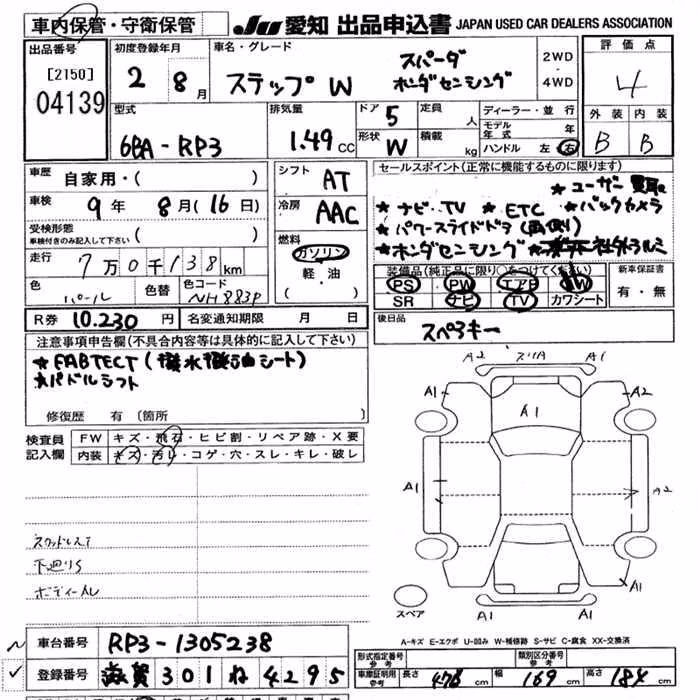 車内保管・守衛保管 JU 愛知 出品申込書 JAPAN USED CAR DEALERS ASSOCIATION
出品番号
[2150]
04139
初度登録年月
2 8月
車名・グレード
ステップW スパーダ
ホンダセンシング
2WD
・
4WD
評価点
4
外装 内装
B B
型式
6BA-RP3
排気量
1.49 CC
ドア 5
形状 W
定員 人
積載 kg
ディーラー・並行
モデル年式 年
ハンドル 左 右
車歴 自家用・( )
車検 9年 8月(16日)
受検形態
車検付きのみ記入して下さい ( )
走行 7万0千138km
色 パール 色替 色コード NH883P
シフト AT
冷房 AAC
燃料
ガソリン
軽・油
( )
セールスポイント(正常に機能するものに限ります)
★ユーザー買取
★ナビ・TV ★ETC ★バックカメラ
★パワースライドドア(両側)
★ホンダセンシング 社外アルミ
装備品(純正品に限り○をつけてください)
PS PW エアB AW
SR ナビ TV カワシート
新車保証書
有・無
R券 10.230円 名変通知期限 月 日
後日品
スペアキー
注意事項申告欄(不具合内容等は具体的に記入して下さい)
★FABTECT(撥水撥油シート)
★パドルシフト
修復歴 有 (箇所 )
検査員記入欄
FW キズ・飛石・ヒビ割・リペア跡・X要
内装 キズ・汚れ・コゲ・穴・スレ・キレ・破レ
下廻りS
A2 スリA A1
A1 A1 A2
A1 A2
A1
A1 A1
スペア
A-キズ E-エクボ U-凹み W-補修跡 S-サビ C-腐食 XX-交換済
車台番号 RP3-1305238
登録番号 滋賀 301 ね 4295
形式指定番号 参考
類別区分番号 参考
車庫証明用 参考 長さ 476cm 幅 169cm 高さ 184cm